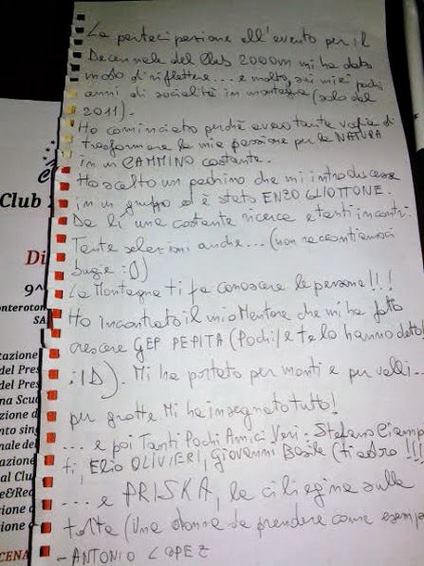 La partecipazione all'evento per il
Decennale del Club 2000m mi ha dato
modo di riflettere... e molto, sui miei pochi
anni di socialità in montagna (solo dal
2011).
Ho cominciato perché avevo tanta voglia di
trasformare la mia passione per la NATURA
in un CAMMINO costante.
Ho scelto un padrino che mi introducesse
in un gruppo ed è stato ENZO CLIOTTONE.
Da lì una costante ricerca e tanti incontri.
Tante selezioni anche... (non raccontiamoci
bugie :D)
La Montagna ti fa conoscere le persone!!!
Ho incontrato il mio Mentore che mi ha fatto
crescere GEP PEPITA (Pochi/e te lo hanno detto!
:D). Mi ha portato per monti e per valli...
per grotte Mi ha insegnato tutto!
... e poi Tanti Pochi Amici Veri: Stefano Ciamp
ti, Elio OLIVIERI, Giovanni Basile (ti adoro!!!
... e PRISKA, la ciliegina sulla
torta (Una donna da prendere come esemp
- ANTONIO LOPEZ
Club
Di
9^
onteroton
SA
tazione
del Pres
del Pres
na Scu
zione d
nto sing
nale de
azione
al Club
e&Rec
zione
zione
CENA